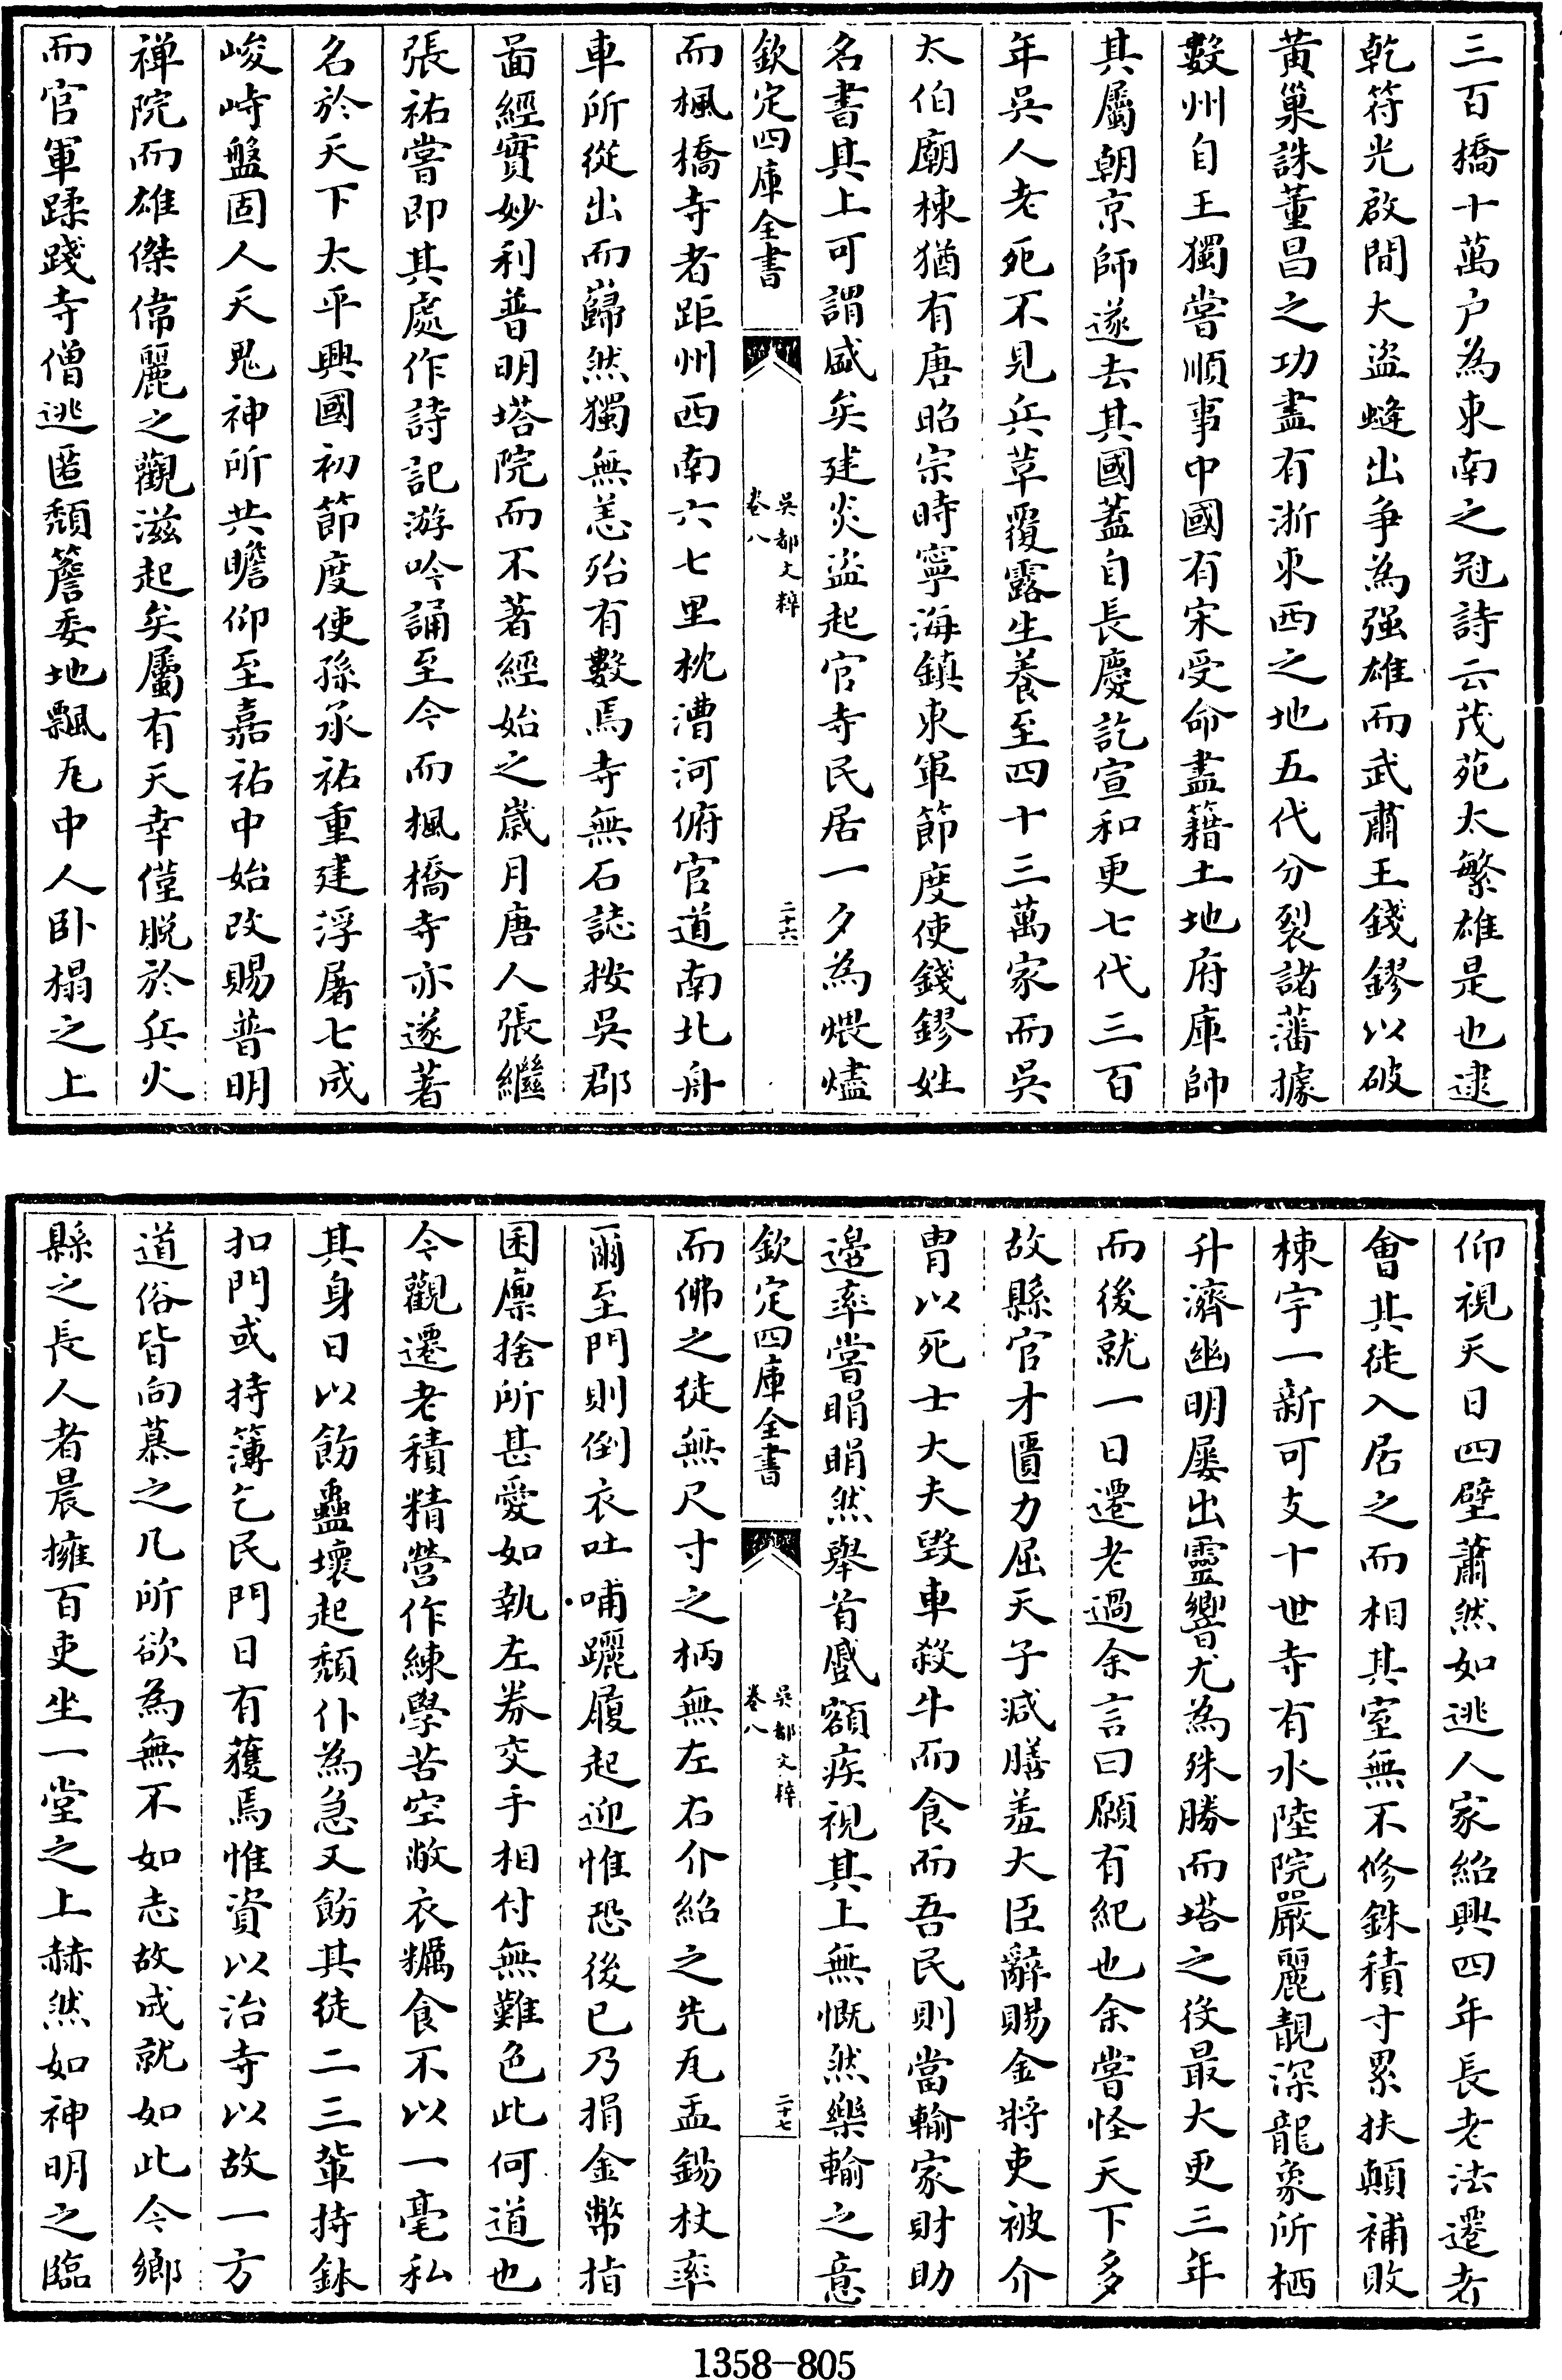 三百橋十萬户為東南之冠詩云茂苑太繁雄是也逮
乾符光啟間大盜蠭出爭為强雄而武肅王錢鏐以破
黄巢誅董昌之功盡有浙東西之地五代分裂諸藩據
數州自王獨嘗順事中國有宋受命盡籍土地府庫帥
其屬朝京師遂去其國蓋自長慶訖宣和更七代三百
年吳人老死不見兵革覆露生養至四十三萬家而吳
太伯廟棟猶有唐昭宗時寧海鎮東軍節度使錢鏐姓
名書其上可謂盛矣建炎盜起官寺民居一夕為煨燼
欽定四庫全書
吳都文粹
卷八
二十六
而楓橋寺者距州西南六七里枕漕河俯官道南北舟
車所從出而巋然獨無恙殆有數焉寺無石誌按吳郡
啚經實妙利普明塔院而不著經始之歲月唐人張繼
張祐嘗即其處作詩記游吟誦至今而楓橋寺亦遂著
名於天下太平興國初節度使孫承祐重建浮屠七成
峻峙盤固人天鬼神所共瞻仰至嘉祐中始改賜普明
禪院而雄傑偉麗之觀滋起矣屬有天幸僅脱於兵火
而官軍蹂踐寺僧逃匿頽簷委地飄瓦中人卧榻之上
仰視天日四壁蕭然如逃人家紹興四年長老法遷者
會其徒入居之而相其室無不修銖積寸累扶顛補敗
棟宇一新可支十世寺有水陸院嚴麗靚深龍象所栖
升濟幽明屢出靈響尤為殊勝而塔之役最大更三年
而後就一日遷老過余言曰願有紀也余嘗怪天下多
故縣官才匱力屈天子減膳羞大臣辭賜金將吏被介
胄以死士大夫毀車殺牛而食而吾民則當輸家財助
邊率嘗睊睊然舉首蹙額疾視其上無慨然樂輸之意
欽定四庫全書
吳都文粹
卷八
二十七
而佛之徒無尺寸之柄無左右介紹之先瓦盂錫杖率
爾至門則倒衣吐哺躧履起迎惟恐後已乃捐金幣指
囷廪捨所甚愛如執左券交手相付無難色此何道也
今觀遷老積精營作練學苦空敝衣糲食不以一毫私
其身日以飭蠱壞起頽仆為急又飭其徒二三輩持鉢
扣門或持簿乞民門日有獲焉惟資以治寺以故一方
道俗皆向慕之凡所欲為無不如志故成就如此今鄉
縣之長人者晨擁百吏坐一堂之上赫然如神明之臨
1358-805